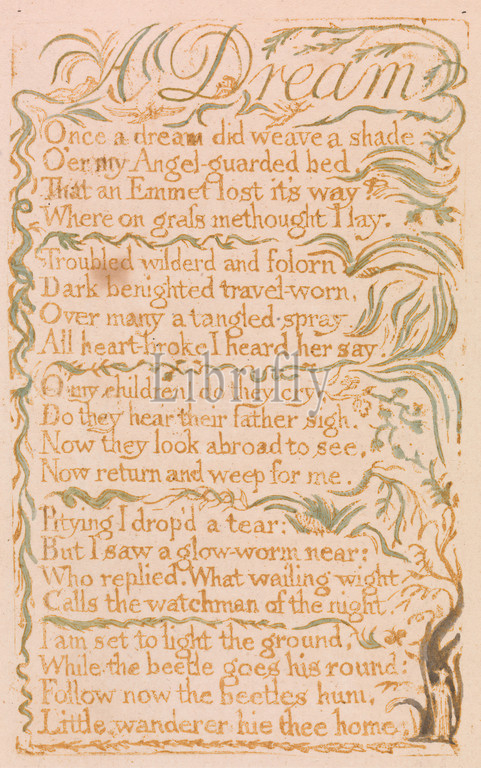 A Dream
Once a dream did weave a shade,
O'er my Angel-guarded bed,
That an Emmet lost it's way
Where on grass methought I lay.
Troubled wilderd and folorn
Dark benighted travel-worn,
Over many a tangled spray
All heart-broke I heard her say.
O my children! do they cry,
Do they hear their father sigh.
Now they look abroad to see,
Now return and weep for me.
Pitying I drop'd a tear:
But I saw a glow-worm near:
Who replied. What wailing wight
Calls the watchman of the night.
I am set to light the ground,
While the beetle goes his round:
Follow now the beetles hum,
Little wanderer hie thee home.
Librufly